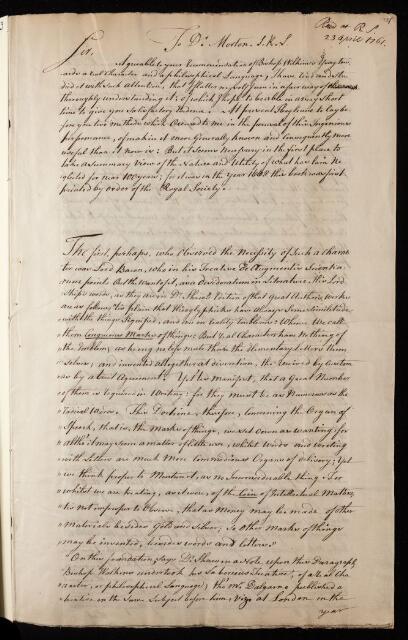 Read at R.S.
23 April 1761.
To Dr. Morton. S.R.S.
Sir,
Agreeable to your Recommendation of Bishop Wilkins's Essay tow=
ards a real Character and a philosophical Language, I have read and stu
died it with such attention, that I flatter myself I am in a fair way of
thoroughly understanding it; of which I hope to be able in a very short
time to give you Satisfactory Evidence. At present, I beg leave to lay be=
fore you two methods which Occurred to me in the perusal of this Ingenious
performance, of making it more Generally known and consequently more
useful than it now is: But it seems necessary in the first place to
take a summary View of the Nature and Utility of what has lain Ne
glected for near 100 years; for it was in the Year 1668 this book was first
printed by order of the Royal Society.
The first, perhaps, who Observed the Necessity of Such a Charac
ter was Lord Bacon, who in his Treatise De Augmentis Scientia
rum points Out the want of it, as a Desideratum in Literature. His Lord
Ships words, as they are in Dr. Shaw's Edition of that Great Author's Works
are as follows; tis plain that Hieroglyphicks have always Some Similitude
with the things Signified, and are in reality Emblems: Whence We call
them Congruous Marks of things. But Real Characters have nothing of
the Emblem; as being no less mute than the Elementary Letters them
selves; and invented altogether at discretion, tho' received by Custom
as by a tacit Agreement. Yet 'tis Manifest, that a Great Number
of them is required in Writing: for they must be as Numerous as the
Radical Words. This Doctrine, therefore, concerning the Organ of
Speech, that is, the Marks of things, we set down as wanting; for
altho' it may seem a matter of little use, whilst words and writing
with Letters are much More commodious Organs of delivery; Yet
we think proper to Mention it, as no Inconsiderable thing. For
whilst we are treating, as it were, of the Coin of Intellectual Matters,
tis not improper to Observe, that as Money may be made of other
Materials besides Gold and Silver; So other Marks of things
may be invented, besides words and letters."
"On this foundation, says Dr. Shaw in a Note upon this Paragraph,
Bishop Wilkins undertook his laborious Treatise, of a Real Cha
racter, or philosophical Language; tho' Mr. Dalgarno published a
treatise on the Same Subject before him; Viz. at London in the
year